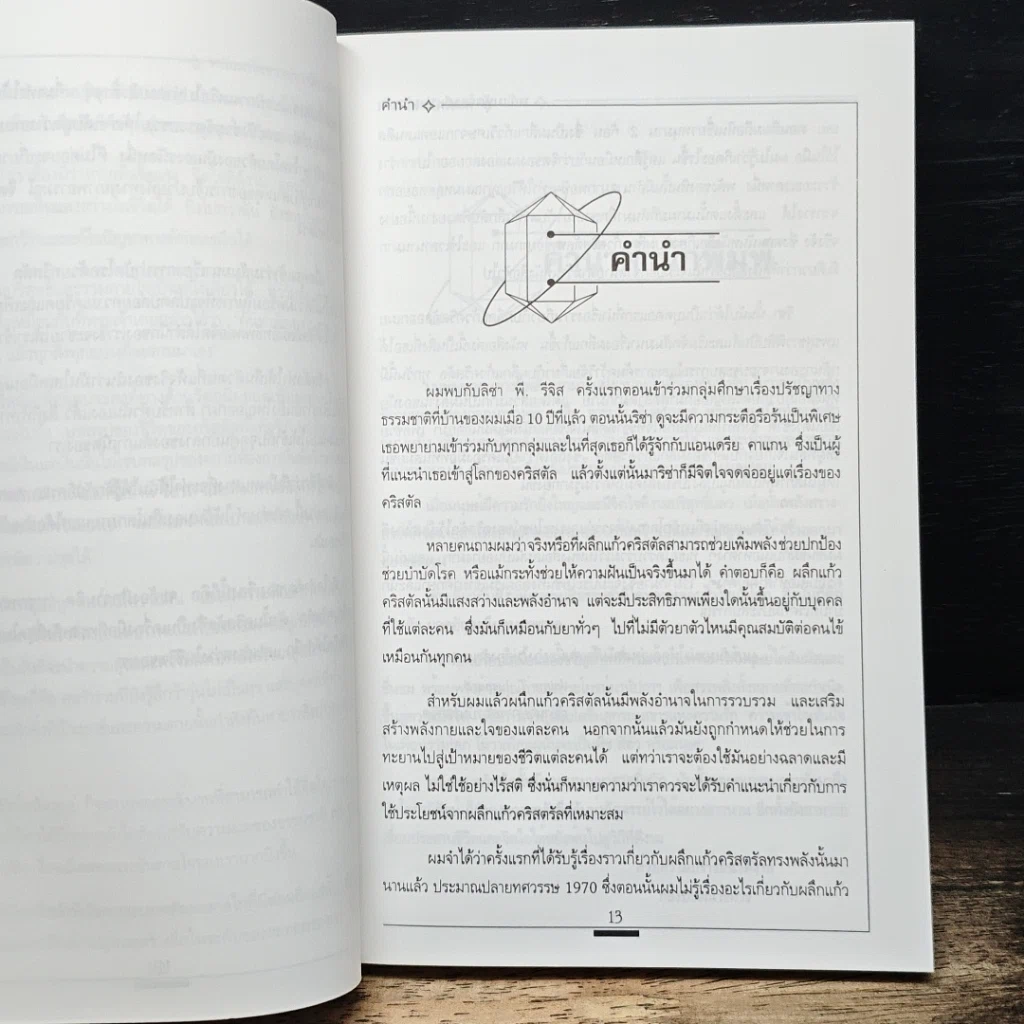 คำนำ
คำนำ
ผมพบกับลิซ่า พี. รีจิส ครั้งแรกตอนเข้าร่วมกลุ่มศึกษาเรื่องปรัชญาทาง
ธรรมชาติที่บ้านของผมเมื่อ 10 ปีที่แล้ว ตอนนั้นริซ่า ดูจะมีความกระตือรือร้นเป็นพิเศษ
เธอพยายามเข้าร่วมกับทุกกลุ่มและในที่สุดเธอก็ได้รู้จักกับแอนเดรีย คาแกน ซึ่งเป็นผู้
ที่แนะนำเธอเข้าสู่โลกของคริสตัล แล้วตั้งแต่นั้นมาริซ่าก็มีจิตใจจดจ่ออยู่แต่เรื่องของ
คริสตัล
หลายคนถามผมว่าจริงหรือที่ผลึกแก้วคริสตัลสามารถช่วยเพิ่มพลังช่วยปกป้อง
ช่วยบำบัดโรค หรือแม้กระทั่งช่วยให้ความฝันเป็นจริงขึ้นมาได้ คำตอบก็คือ ผลึกแก้ว
คริสตัลนั้นมีแสงสว่างและพลังอำนาจ แต่จะมีประสิทธิภาพเพียงใดนั้นขึ้นอยู่กับบุคคล
ที่ใช้แต่ละคน ซึ่งมันก็เหมือนกับยาทั่วๆ ไปที่ไม่มีตัวยาตัวไหนมีคุณสมบัติต่อคนไข้
เหมือนกันทุกคน
สำหรับผมแล้วผนึกแก้วคริสตัลนั้นมีพลังอำนาจในการรวบรวม และเสริม
สร้างพลังกายและใจของแต่ละคน นอกจากนั้นแล้วมันยังถูกกำหนดให้ช่วยในการ
ทะยานไปสู่เป้าหมายของชีวิตแต่ละคนได้ แต่ทว่าเราจะต้องใช้มันอย่างฉลาดและมี
เหตุผล ไม่ใช่ใช้อย่างไร้สติ ซึ่งนั่นก็หมายความว่าเราควรจะได้รับคำแนะนำเกี่ยวกับการ
ใช้ประโยชน์จากผลึกแก้วคริสตรัลที่เหมาะสม
ผมจำได้ว่าครั้งแรกที่ได้รับรู้เรื่องราวเกี่ยวกับผลึกแก้วคริสตรัลทรงพลังนั้นมา
นานแล้ว ประมาณปลายทศวรรษ 1970 ซึ่งตอนนั้นผมไม่รู้เรื่องอะไรเกี่ยวกับผลึกแก้ว
13